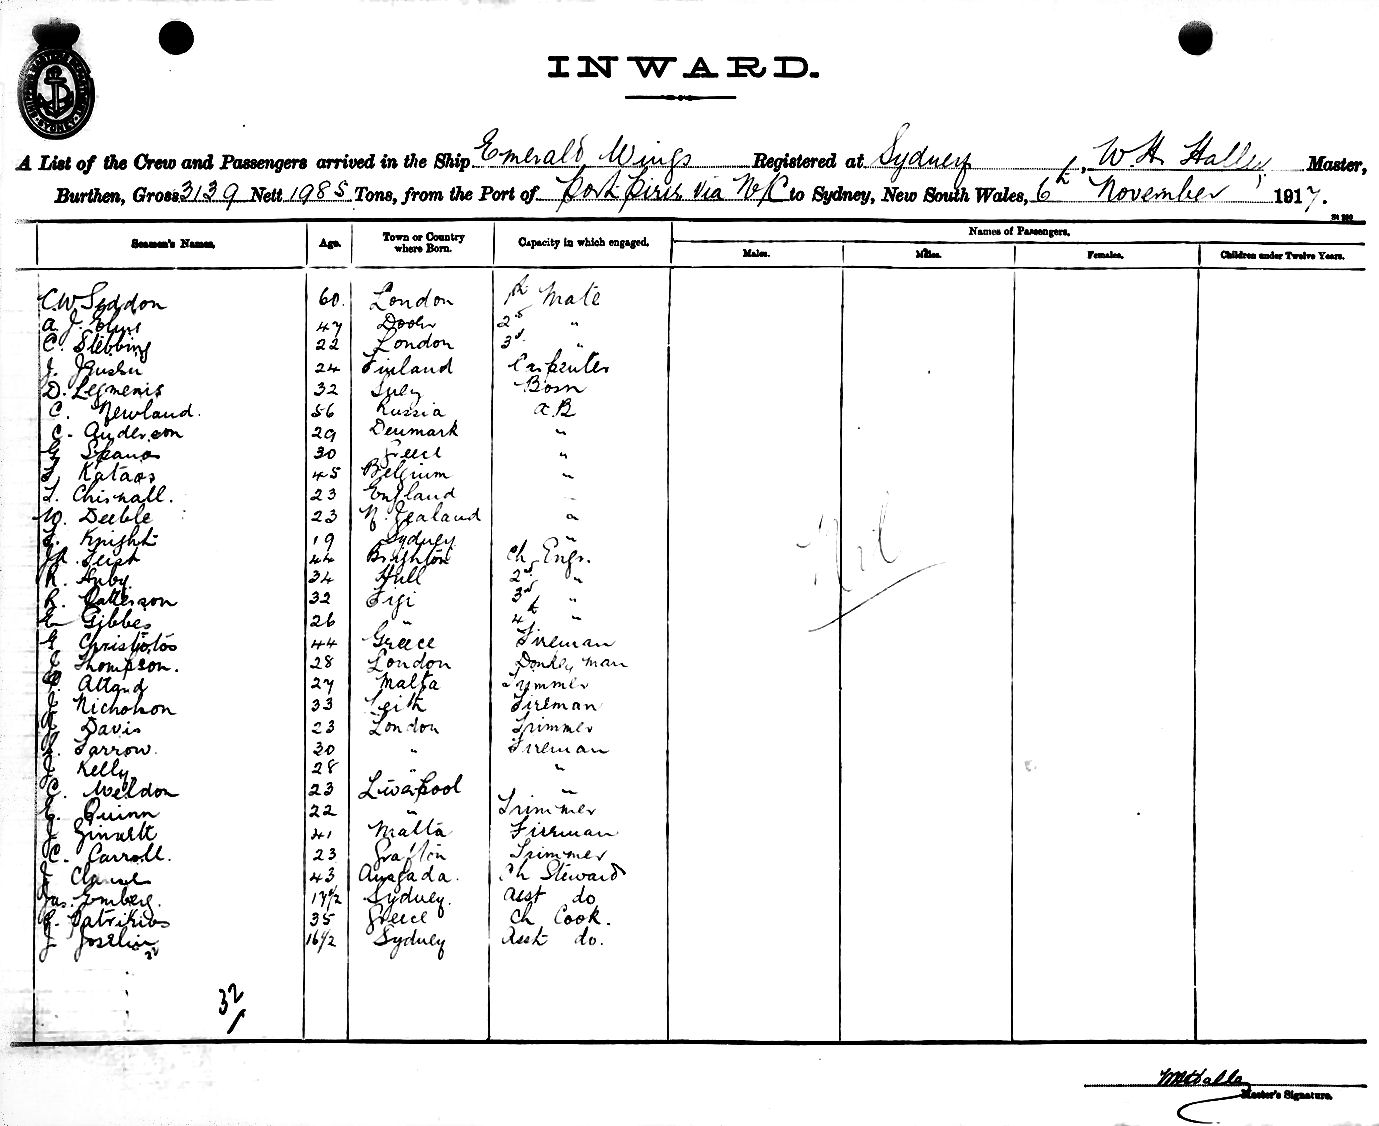 INWARD.
A List of the Crew and Passengers arrived in the Ship Emerald Wings Registered at Sydney, W H Halley Master,
Burthen, Gross 3139 Nett 1985 Tons, from the Port of Port Pirie via N/C to Sydney, New South Wales, 6th November 1917.
Seamen's Names. Age. Town or Country where Born. Capacity in which engaged. Names of Passengers.
Males. Males. Females. Children under Twelve Years.
C.W Seddon 60. London 1st Mate
A. J. 47 2d "
C. Stebbing 22 London 3d "
J. 24 Finland Carpenter
D. 32 Bosn
C. Newland. 56 Russia A B
C. Anderson 29 Denmark "
G Spanos 30 Greece "
Kataos 45 Belgium "
T. Chisnall. 23 England "
W. Deeble 23 N. Zealand "
Knight 19 Sydney "
Feist 44 Brighton Ch Engr.
R. Anby 34 Hull 2d "
R. Patterson 32 Fiji 3d "
E Gibbes 26 " 4th "
G Christofos 44 Greece Fireman
Thompson. 28 London Donkey man
Attard 27 Malta Trimmer
J Nicholson 33 Leith Fireman
Davis 23 London Trimmer
Farrow. 30 " Fireman
J Kelly 28 " "
C. Weldon 23 Liverpool "
E. Quinn 22 " Trimmer
J 41 Malta Fireman
C. Carroll. 23 Grafton Trimmer
J 43 Ch Steward
Jas. Emberg. 17 1/2 Sydney. Asst do
Patrikios 35 Greece Ch Cook.
J Joselin 16 1/2 Sydney Asst do.
Nil
32
W H Halley
Master's Signature.